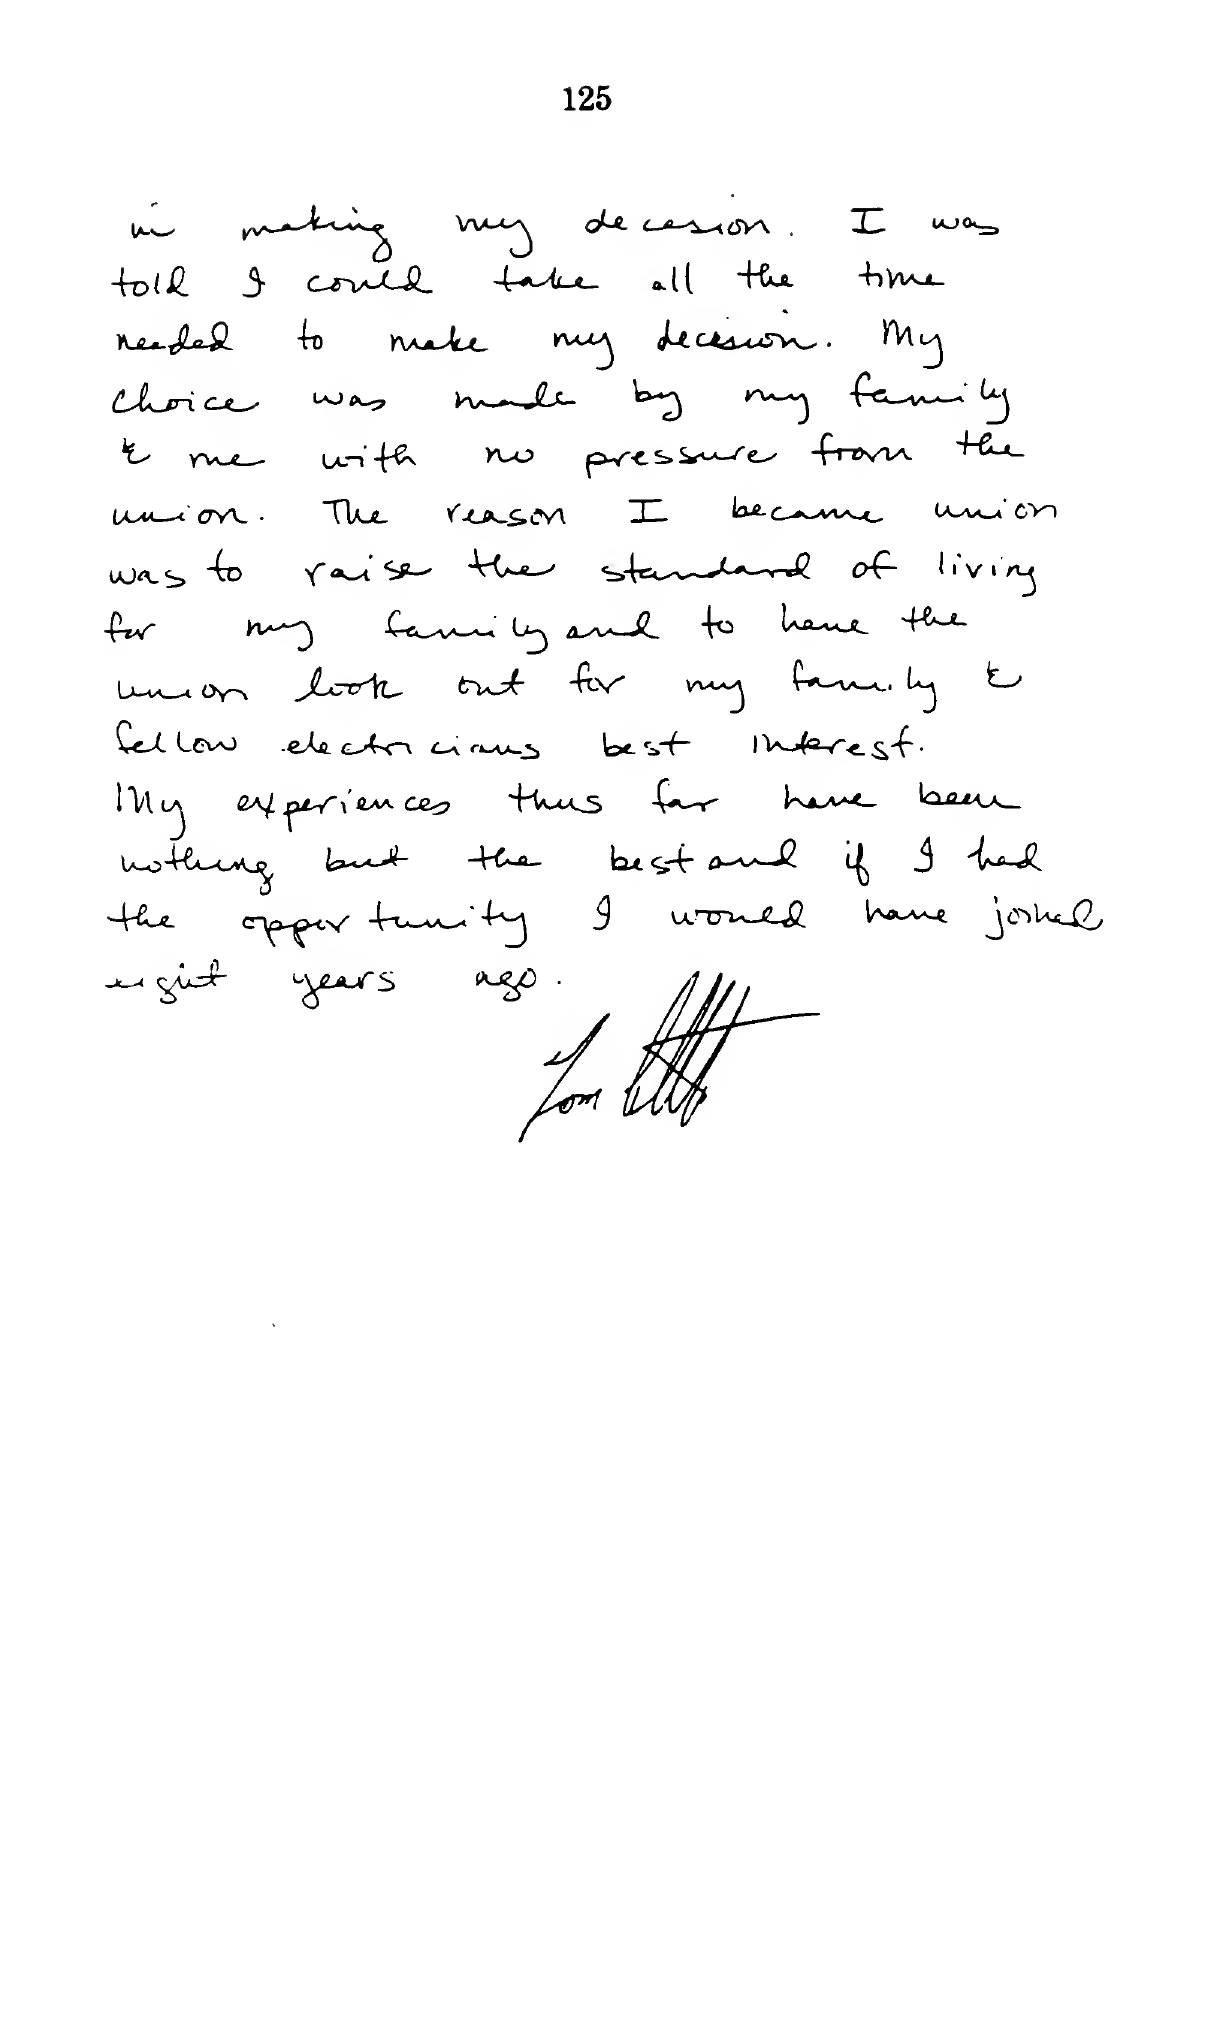 125
in making my decesion. I was
told I could take all the time
needed to make my decesion. My
choice was made by my family
& me with no pressure from the
union. The reason I became union
was to raise the standard of living
for my family and to have the
union look out for my family &
fellow electricians best interest.
My experiences thus far have been
nothing but the best and if I had
the opportunity I would have joined
eight years ago.
Tom